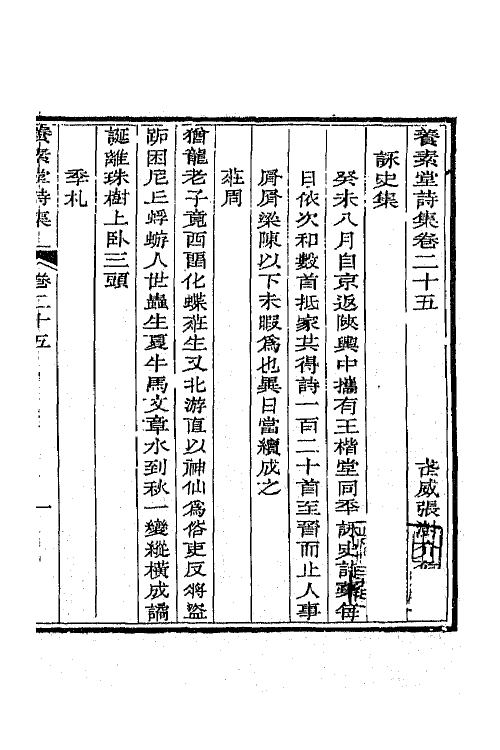 養素堂詩集卷二十五
武威張澍介侯
詠史集
癸未八月自京返陝輿中攜有王楷堂同年詠史詩集每
日依次和數首抵家共得詩一百二十首至晉而止人事
屑屑梁陳以下未暇為也異日當續成之
莊周
猶龍老子竟西酉化蝶莊生又北游直以神仙為俗吏反將盜
跖困尼丘蜉蝣人世蟲生夏牛馬文章水到秋一變縱橫成譎
誕離珠樹上卧三頭
季札
養素堂詩集
卷二十五
一